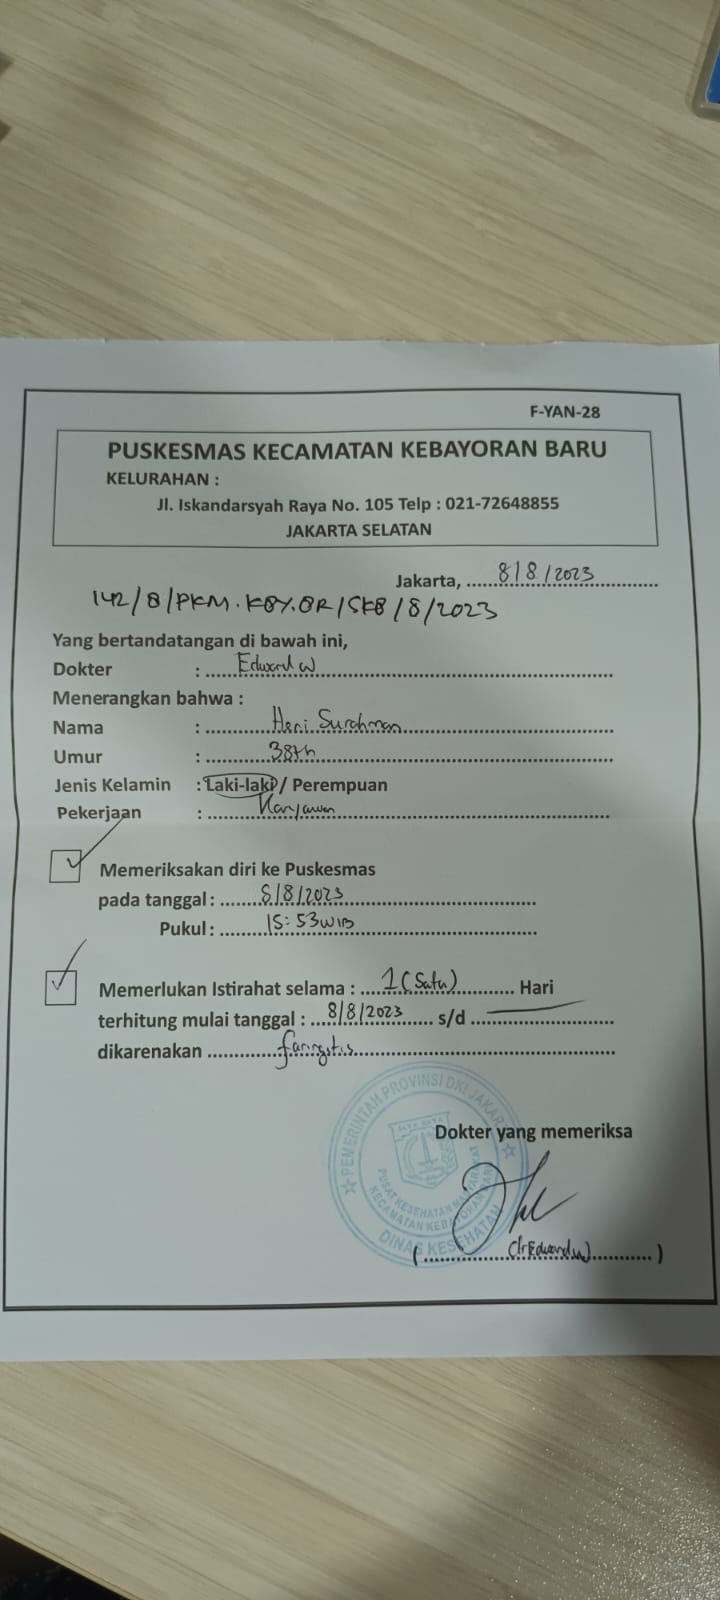 F-YAN-28
PUSKESMAS KECAMATAN KEBAYORAN BARU
KELURAHAN :
Jl. Iskandarsyah Raya No. 105 Telp : 021-72648855
JAKARTA SELATAN
Jakarta, ..... 8/8/2023 ...............
142/8/PKM.KBY.BR/SKB/8/2023
Yang bertandatangan di bawah ini,
Dokter : ..... Edward W ...............
Menerangkan bahwa :
Nama : ............ Heri Surahman ...............
Umur : ............ 38th ...............
Jenis Kelamin : Laki-laki / Perempuan
Pekerjaan : ......... Karyawan ...............
Memeriksakan diri ke Puskesmas
pada tanggal : ....... 8/8/2023 ...............
Pukul : ........ 15:53 WIB ...............
Memerlukan Istirahat selama : .... 1 (Satu) .......... Hari
terhitung mulai tanggal : .... 8/8/2023 ..... s/d ...............
dikarenakan ............ faringitis ...............
Dokter yang memeriksa
PEMERINTAH PROVINSI DKI JAKARTA
JAYA RAYA
PUSAT KESEHATAN MASYARAKAT
KECAMATAN KEBAYORAN BARU
DINAS KESEHATAN
( ............ dr Edward W ............ )